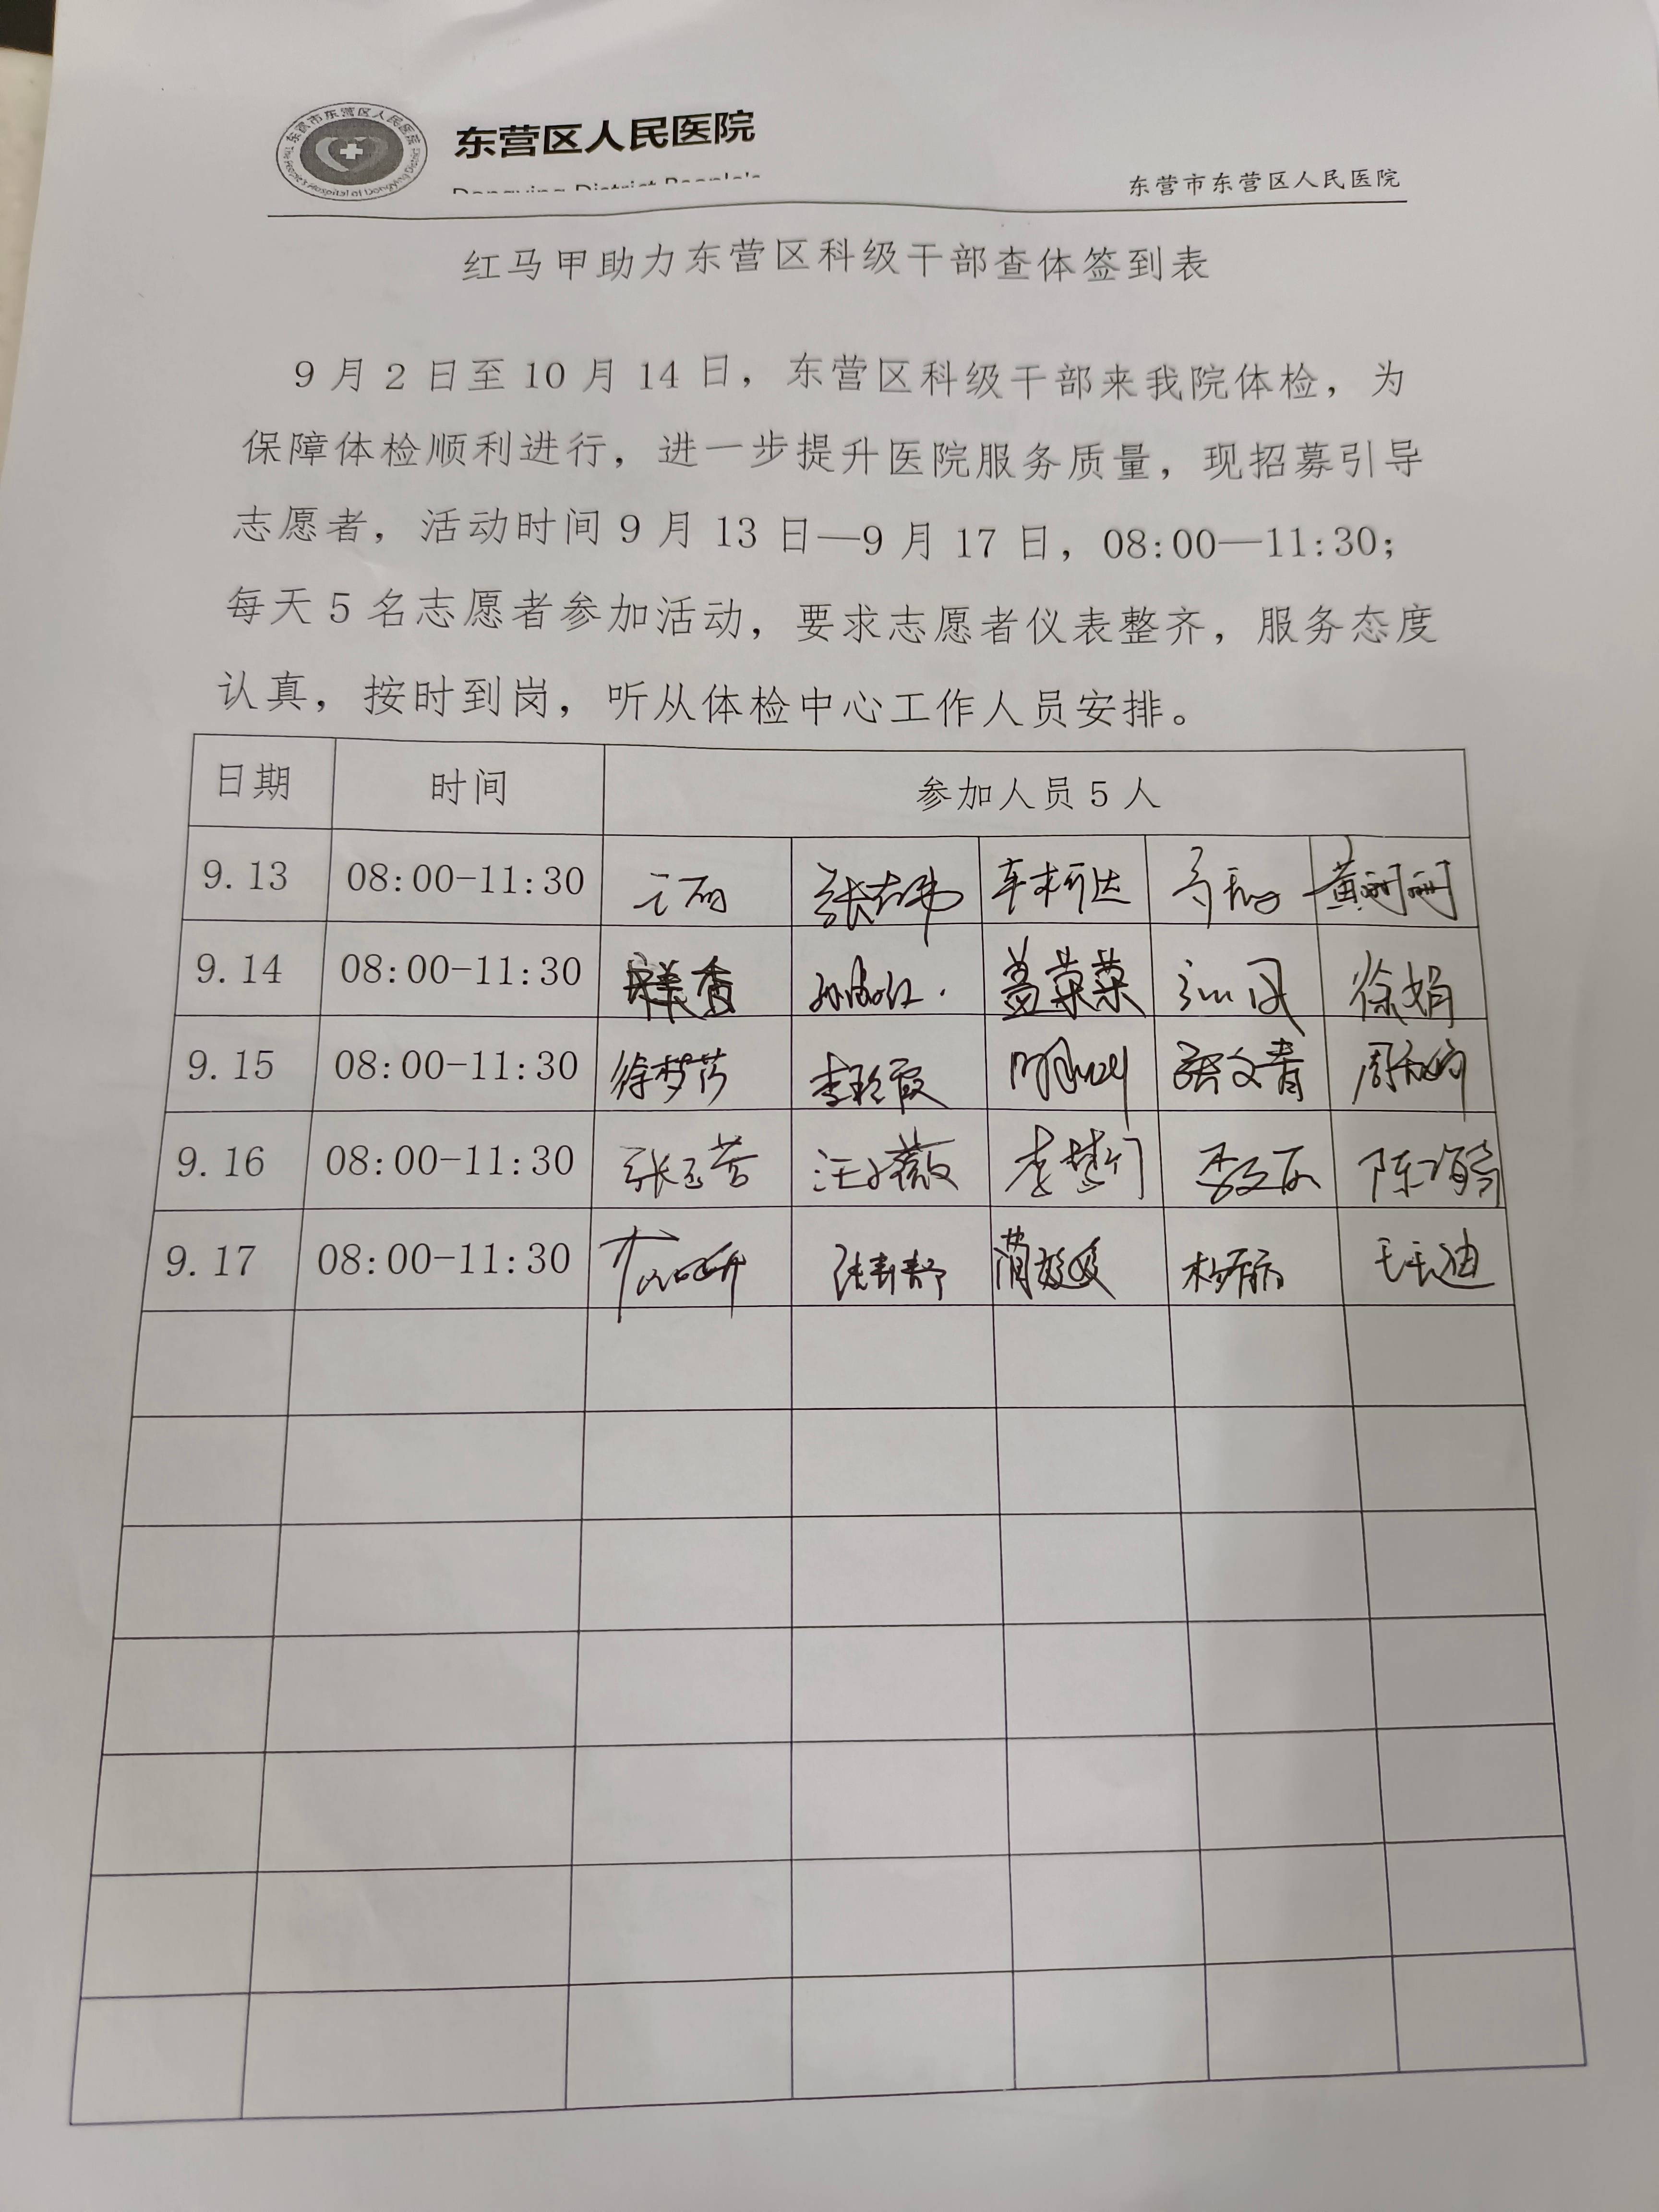 东营市东营区人民医院
The People's Hospital of Dongying District
东营区人民医院
Dongying District People's
东营市东营区人民医院
红马甲助力东营区科级干部查体签到表
9月2日至10月14日，东营区科级干部来我院体检，为
保障体检顺利进行，进一步提升医院服务质量，现招募引导
志愿者，活动时间9月13日—9月17日，08:00—11:30；
每天5名志愿者参加活动，要求志愿者仪表整齐，服务态度
认真，按时到岗，听从体检中心工作人员安排。
日期 时间 参加人员5人
9.13 08:00-11:30 黄珊珊
9.14 08:00-11:30 葛菜菜 徐娟
9.15 08:00-11:30 徐梦莎 李玲霞 张文青
9.16 08:00-11:30 张玉芳 汪薇
9.17 08:00-11:30 张青青 蔺媛媛 杨丽丽 王玉迪